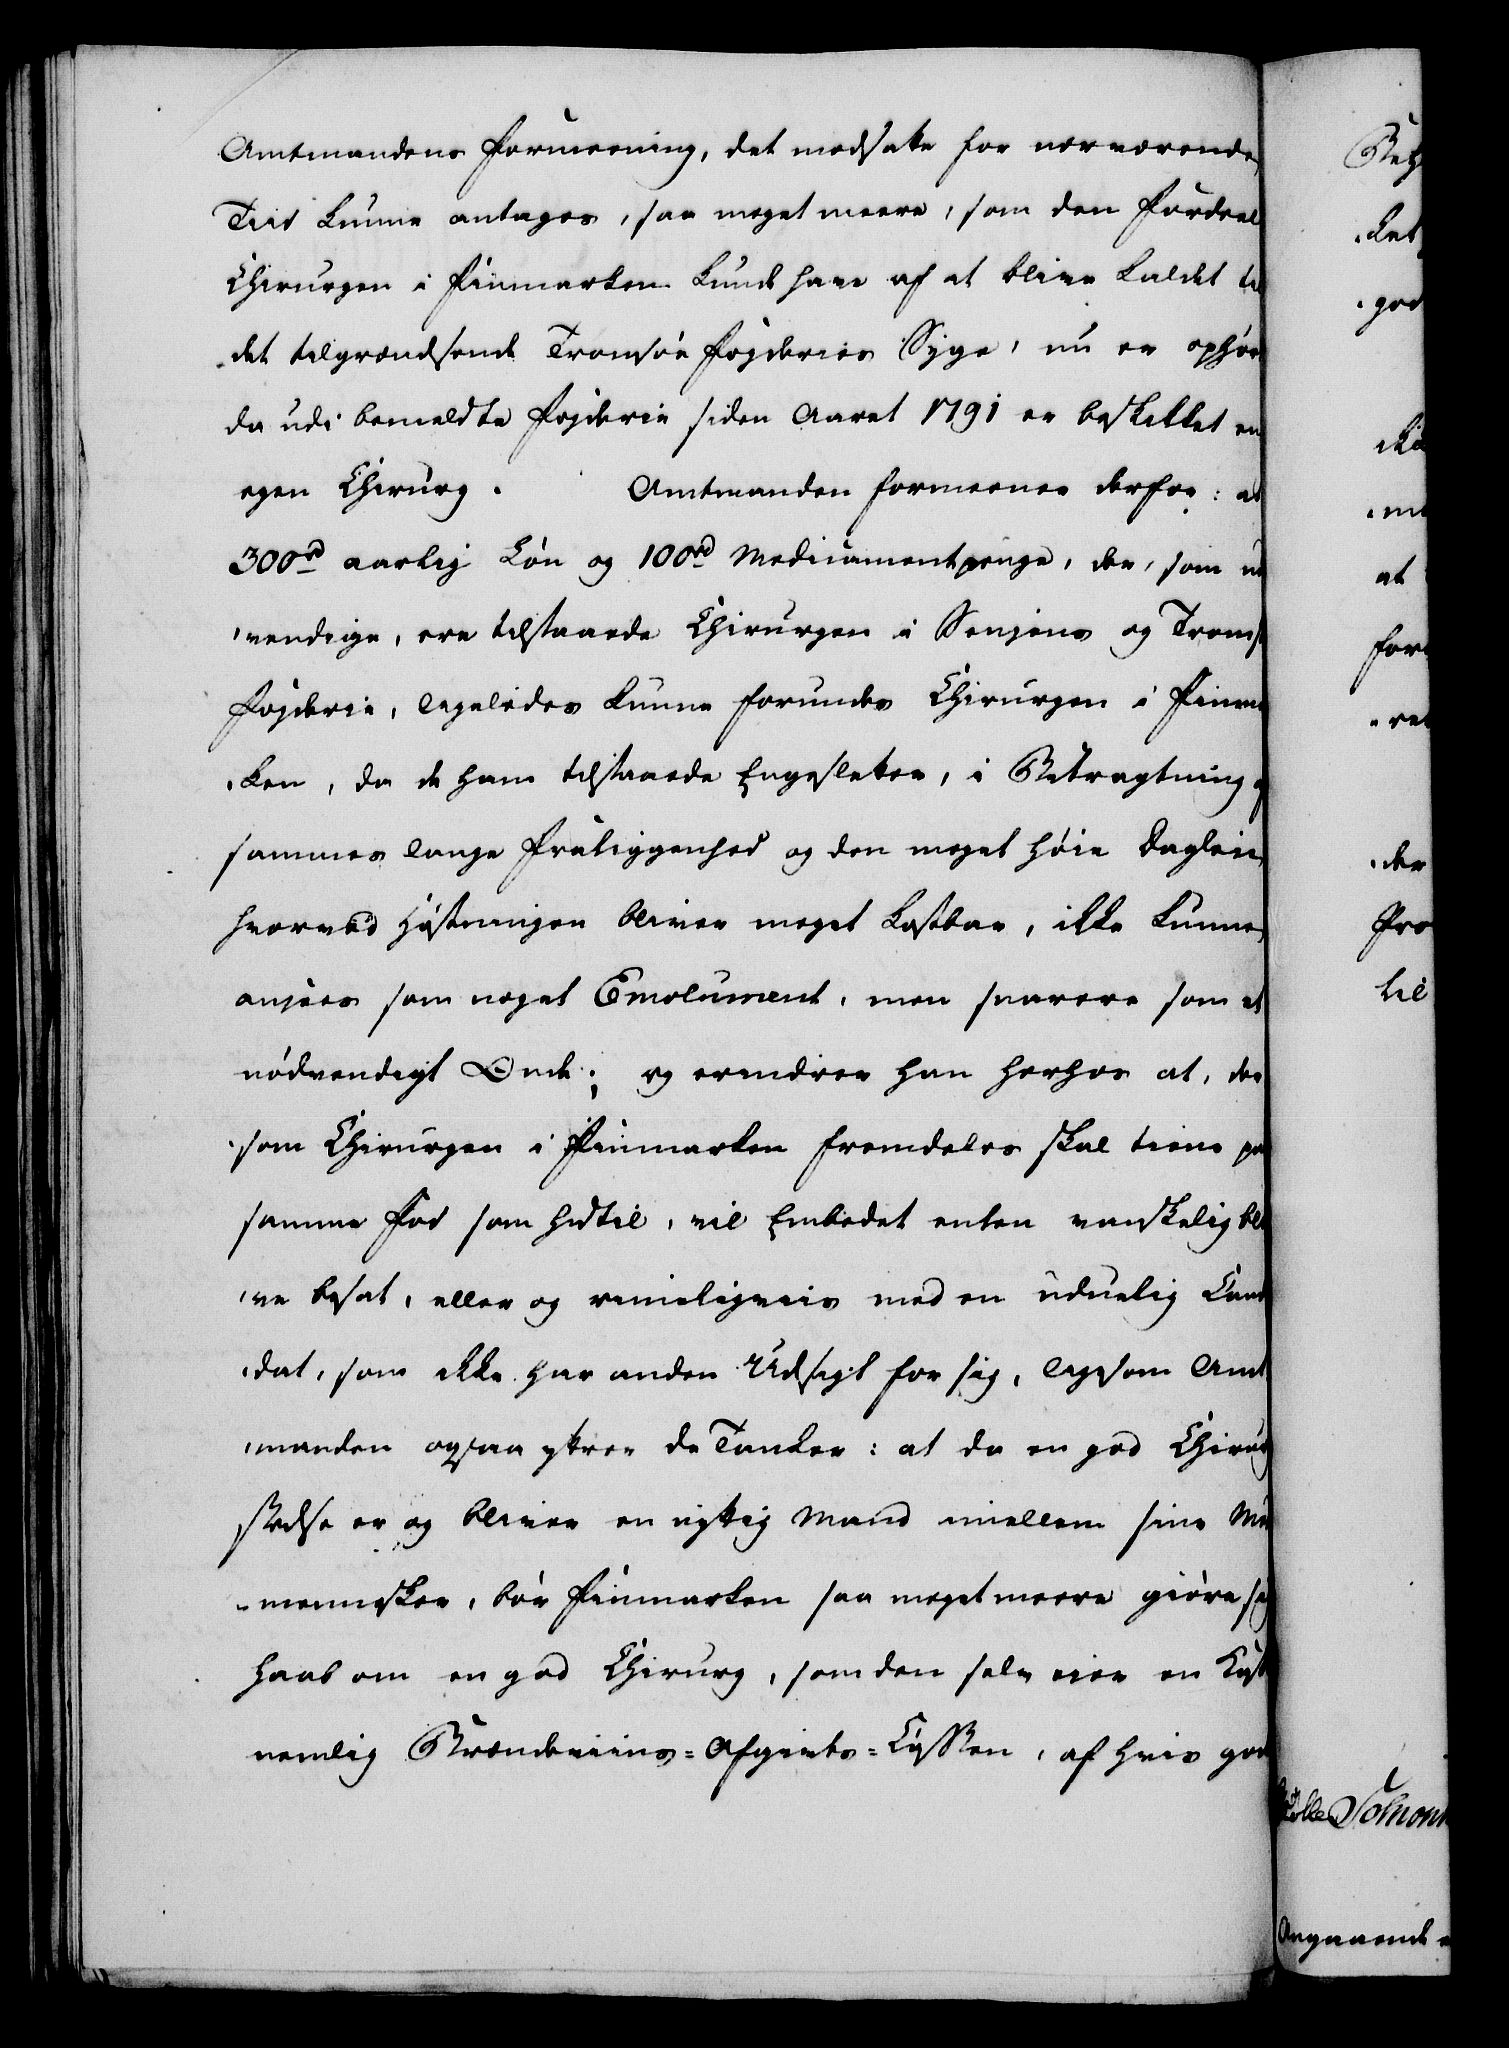 Amtmandens Formeening, det modsatte for nærværende
Tiid kunne antages, saa meget meere, som den Fordeel
Chirurgen i Finmarken kunde have af at blive kaldet til
det tilgrændsende Tromsøe Fogderies Syge, nu er ophør
da udi bemeldte Fogderie siden Aaret 1791 er beskikket en
egen Chirurg. Amtmanden formeener derfor: at
300rd aarlig Løn og 100rd Medicamentpenge, der, som
vendige, ere tilstaaede Chirurgen i Senjens og Troms
Fogderie, ligeledes kunne forundes Chirurgen i Finmar
ken, da de ham tilstaaede, i Betragtning af
sammes lange Fraliggenhed og den meget høie Dagleie
hvorved Høstningen bliver meget kostbar, ikke kunne
ansees som noget Emolument, men snarere som et
nødvendigt Onde; og erindrer han herhos at, der
som Chirurgen i Finmarken fremdeles skal tiene paa
samme Fod som hidtil, vil Embedet enten vanskelig bli
ve besat, eller og rimeligviis med en uduelig Candi
dat, som ikke har anden Udsigt for sig, ligesom Amt
manden ogsaa yttrer de Tanker: at da en god Chirurg
stedse er og bliver en vigtig Mand imellem sine Med
mennesker, bør Finmarken saa meget meere giøre sig
Haab om en god Chirurg, som den selv eier en
nemlig Brændeviins-Afgivts-Cassen, af hvis god
Beh
ket
god
at
for
der
Pro
til
Solmon
Angaaende